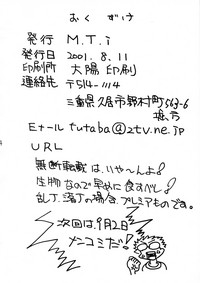 おくづけ
発行 M.T.i
発行日 2001.8.11
印刷所 大陽印刷
連絡先 〒514-1114
三重県久居市野村町563-6
Eメール tutaba@ztv.ne.jp
URL
無断転載はいや〜んよ!
生物なので早めに食すべし!
乱丁、落丁の場合、プレミアものです。
次回は、9月2日
メンコミだ!